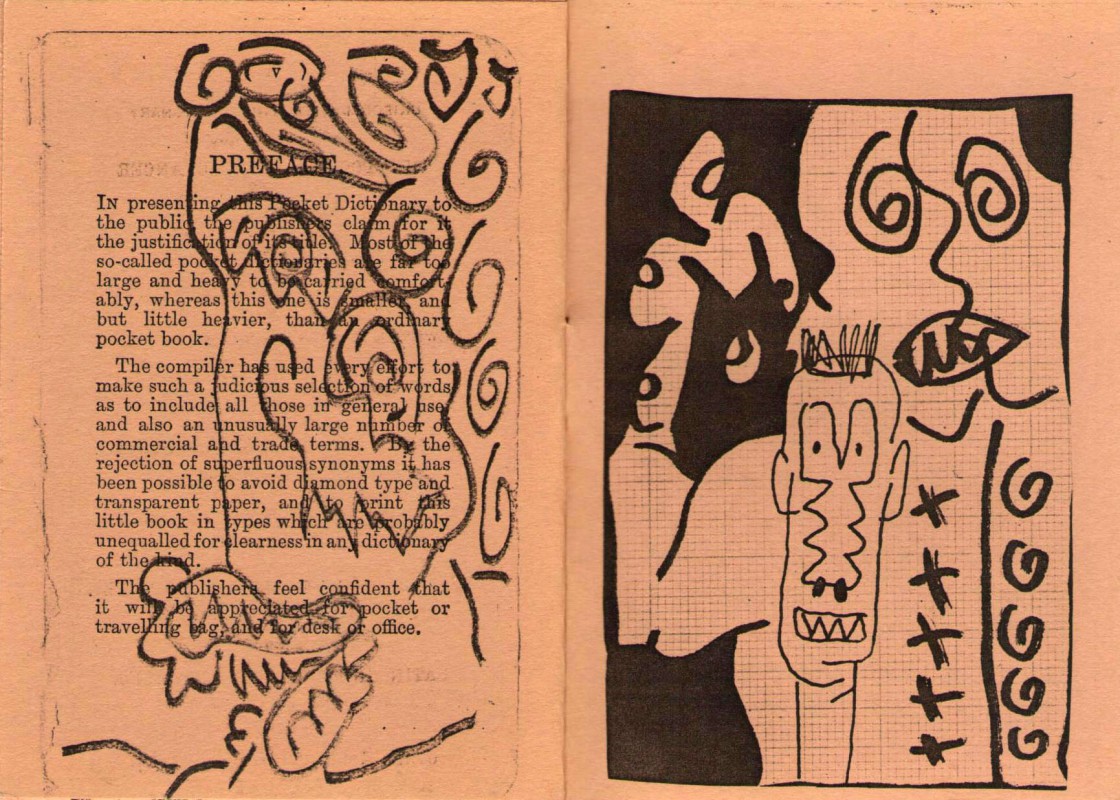 PREFACE.
IN presenting this Pocket Dictionary to
the public the publishers claim for it
the justification of its title. Most of the
so-called pocket dictionaries are far too
large and heavy to be carried comfort-
ably, whereas this one is smaller and
but little heavier, than an ordinary
pocket book.
The compiler has used every effort to
make such a judicious selection of words
as to include all those in general use
and also an unusually large number of
commercial and trade terms. By the
rejection of superfluous synonyms it has
been possible to avoid diamond type and
transparent paper, and to print this
little book in types which are probably
unequalled for clearness in any dictionary
of the kind.
The publishers feel confident that
it will be appreciated for pocket or
travelling bag, and for desk or office.